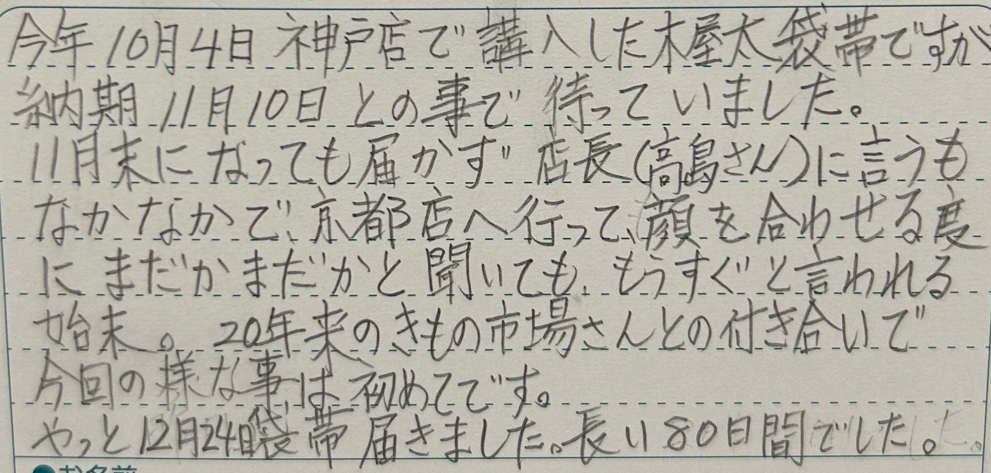 今年10月4日 神戸店で講入した木屋太袋帯ですが
納期11月10日との事で待っていました。
11月末になっても届かず店長(高島さん)に言うも
なかなかで、京都店へ行って、顔を合わせる度
にまだかまだかと聞いても、もうすぐと言われる
始末。20年来のきもの市場さんとの付き合いで
今回の様な事は初めてです。
やっと12月24日袋帯届きました。長い80日間でした。
お名前